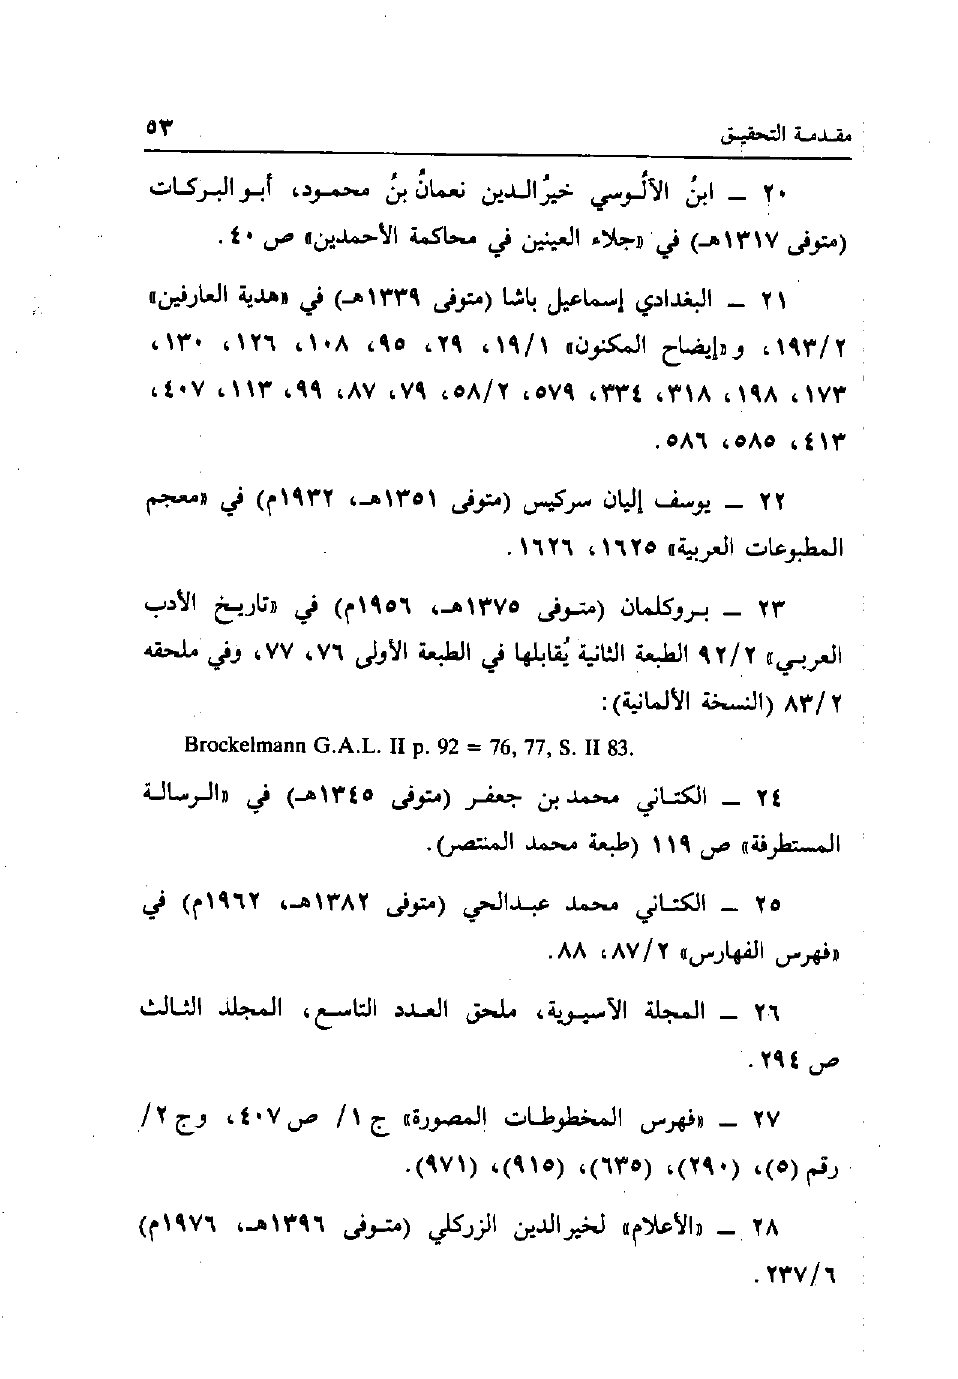 مقدمة التحقيق ٥٣
٢٠ ــ ابنُ الألُوسي خيرُالدين نعمانُ بنُ محمود، أبو البركات
(متوفى ١٣١٧هـ) في «جلاء العينين في محاكمة الأحمدين» ص ٤٠.
٢١ ــ البغدادي إسماعيل باشا (متوفى ١٣٣٩هـ) في «هدية العارفين»
١٩٣/٢، و «إيضاح المكنون» ١٩/١، ٢٩، ٩٥، ١٠٨، ١٢٦، ١٣٠،
١٧٣، ١٩٨، ٣١٨، ٣٣٤، ٥٧٩، ٥٨/٢، ٧٩، ٨٧، ٩٩، ١١٣، ٤٠٧،
٤١٣، ٥٨٥، ٥٨٦.
٢٢ ــ يوسف إليان سركيس (متوفى ١٣٥١هـ، ١٩٣٢م) في «معجم
المطبوعات العربية» ١٦٢٥، ١٦٢٦.
٢٣ ــ بروكلمان (متوفى ١٣٧٥هـ، ١٩٥٦م) في «تاريخ الأدب
العربي» ٩٢/٢ الطبعة الثانية يُقابلها في الطبعة الأولى ٧٦، ٧٧، وفي ملحقه
٨٣/٢ (النسخة الألمانية):
Brockelmann G.A.L. II p. 92 = 76, 77, S. II 83.
٢٤ ــ الكتاني محمد بن جعفر (متوفى ١٣٤٥هـ) في «الرسالة
المستطرفة» ص ١١٩ (طبعة محمد المنتصر).
٢٥ ــ الكتاني محمد عبدالحي (متوفى ١٣٨٢هـ، ١٩٦٢م) في
«فهرس الفهارس» ٨٧/٢، ٨٨.
٢٦ ــ المجلة الآسيوية، ملحق العدد التاسع، المجلد الثالث
ص ٢٩٤.
٢٧ ــ «فهرس المخطوطات المصورة» ج ١/ ص ٤٠٧، وج ٢/
رقم (٥)، (٢٩٠)، (٦٣٥)، (٩١٥)، (٩٧١).
٢٨ ــ «الأعلام» لخيرالدين الزركلي (متوفى ١٣٩٦هـ، ١٩٧٦م)
٢٣٧/٦.